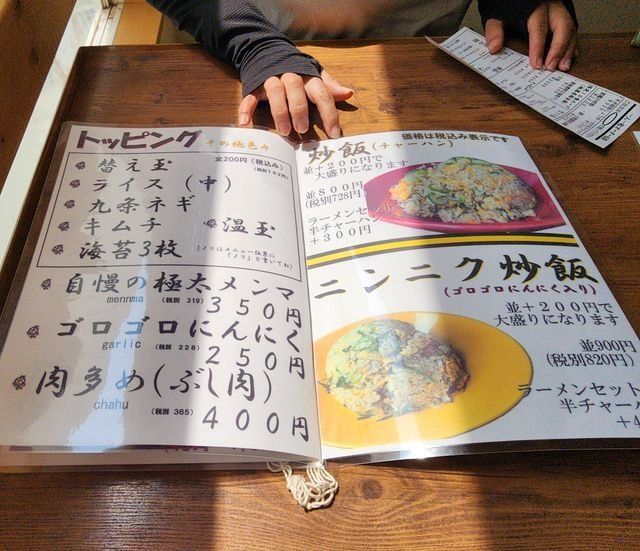 トッピング その他色々
替え玉 全200円(税込み)
(税別182円)
ライス(中)
九条ネギ
キムチ 温玉
海苔3枚
(ノリはメニュー伝票に
「ノリ」と書いてね)
自慢の極太メンマ
mennma (税別 319) 350円
ゴロゴロにんにく
garlic (税別 228) 250円
肉多め(ぶし肉)
chahu (税別 365) 400円
価格は税込み表示です
炒飯(チャーハン)
並+200円で
大盛りになります
並800円
(税別728円)
ラーメンセット
半チャーハン
+300円
ニンニク炒飯
(ゴロゴロにんにく入り)
並+200円で
大盛りになります
並900円
(税別820円)
ラーメンセット
半チャーハ
+4